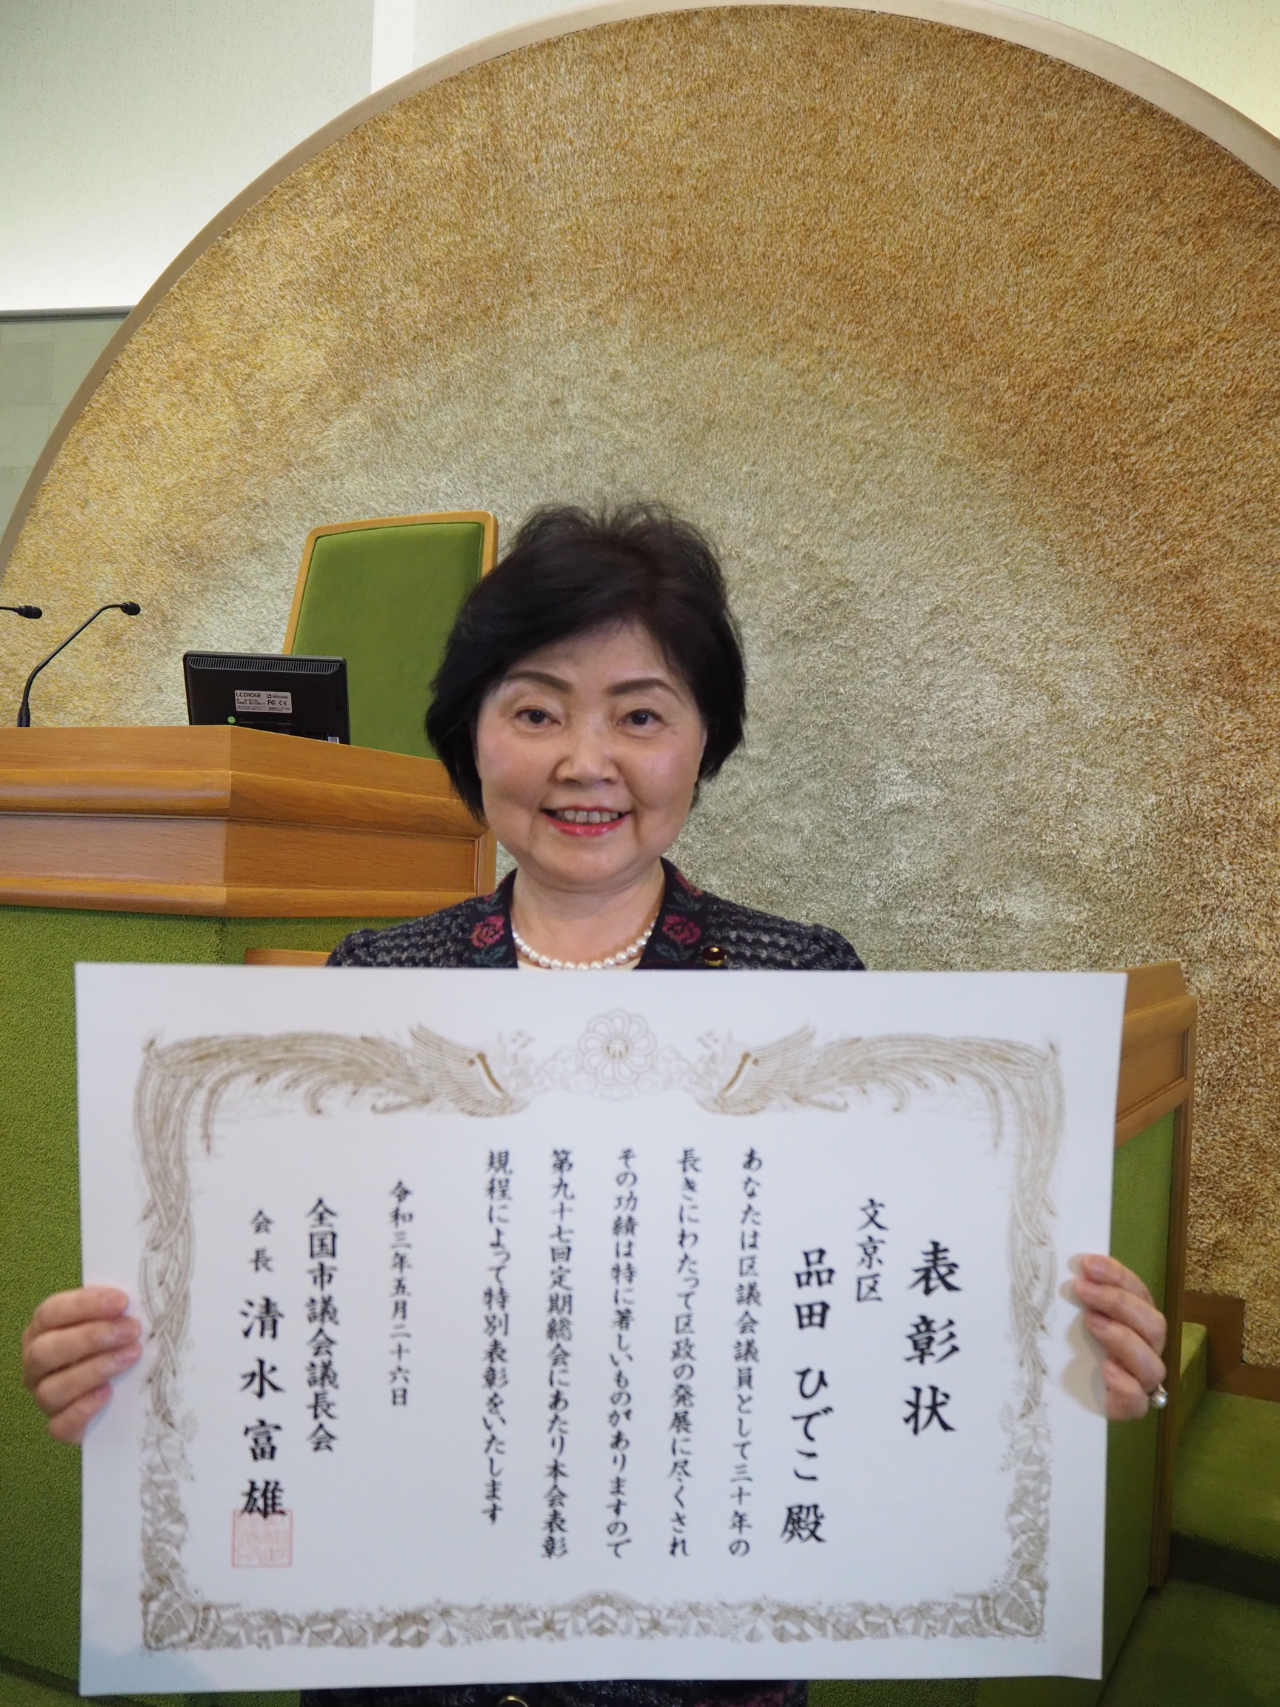 表彰状
文京区
品田 ひでこ 殿
あなたは区議会議員として三十年の
長きにわたって区政の発展に尽くされ
その功績は特に著しいものがありますので
第九十七回定期総会にあたり本会表彰
規程によって特別表彰をいたします
令和三年五月二十六日
全国市議会議長会
会長 清水富雄
LCD1012
FC CE